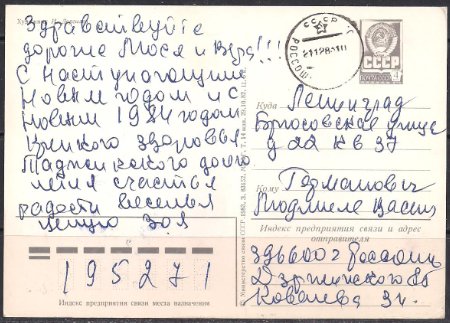 Здравствуйте
дорогие Мося и Вера!!!
С наступающим
Новым годом и с
Новым 1984 годом
Крепкого здоровья
Таджикского долго
летия счастья
радости веселья
Зоя
СССР
РОССОШЬ
СССР
ПОЧТА
4
Куда Ленинград
Брюсовская улица
д 22 кв 37
Кому Германович
Людмиле Васил
Индекс предприятия связи и адрес
отправителя
396600 г Россошь
Дзержинского
Ковалева З.
195271
Индекс предприятия связи места назначения